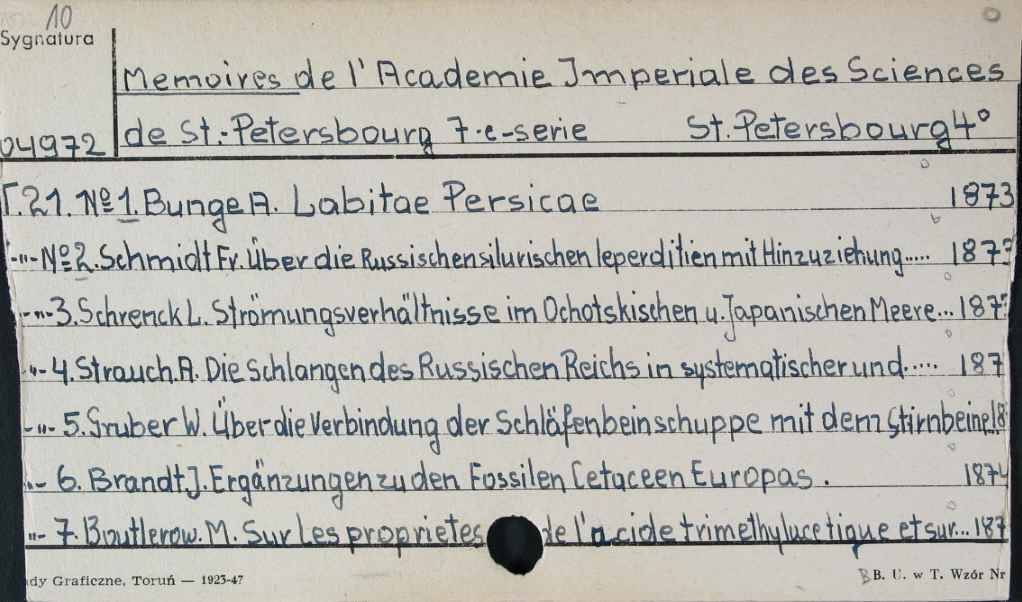 10
Sygnatura
Memoires de l'Academie Imperiale des Sciences
04972 de St.-Petersbourg 7-e-serie St. Petersbourg 4°
T.21. № 1. Bunge A. Labitae Persicae 1873
-"- № 2. Schmidt Fr. Über die Russischen silurischen leperditien mit Hinzuziehung..... 1873
-"- 3. Schrenck L. Strömungsverhältnisse im Ochotskischen u. Japanischen Meere... 187
"- 4. Strauch. A. Die Schlangen des Russischen Reichs in systematischer und..... 187
-"- 5. Gruber W. Über die Verbindung der Schläfenbeinschuppe mit dem Stirnbeine 18
"- 6. Brandt J. Ergänzungen zu den Fossilen Cetaceen Europas. 1874
"- 7. Boutlerow. M. Sur les proprietes de l'acide trimethylucetique et sur... 187
dy Graficzne, Toruń — 1923-47 B. U. w T. Wzór Nr